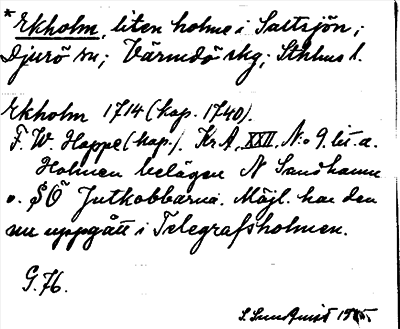 * Ekholm, liten holme i Saltsjön;
Djurö sn; Värmdö skg; Sthlms l.
Ekholm 1714 (kop. 1740).
F. W. Hoppe (kop.). Kr A, XXII, No 9. lit. a.
Holmen belägen N Sandhamn
o. SÖ Jutkobbarna. Möjl. har den
nu uppgått i Telegrafsholmen.
G. 76.
S. Sundqvist